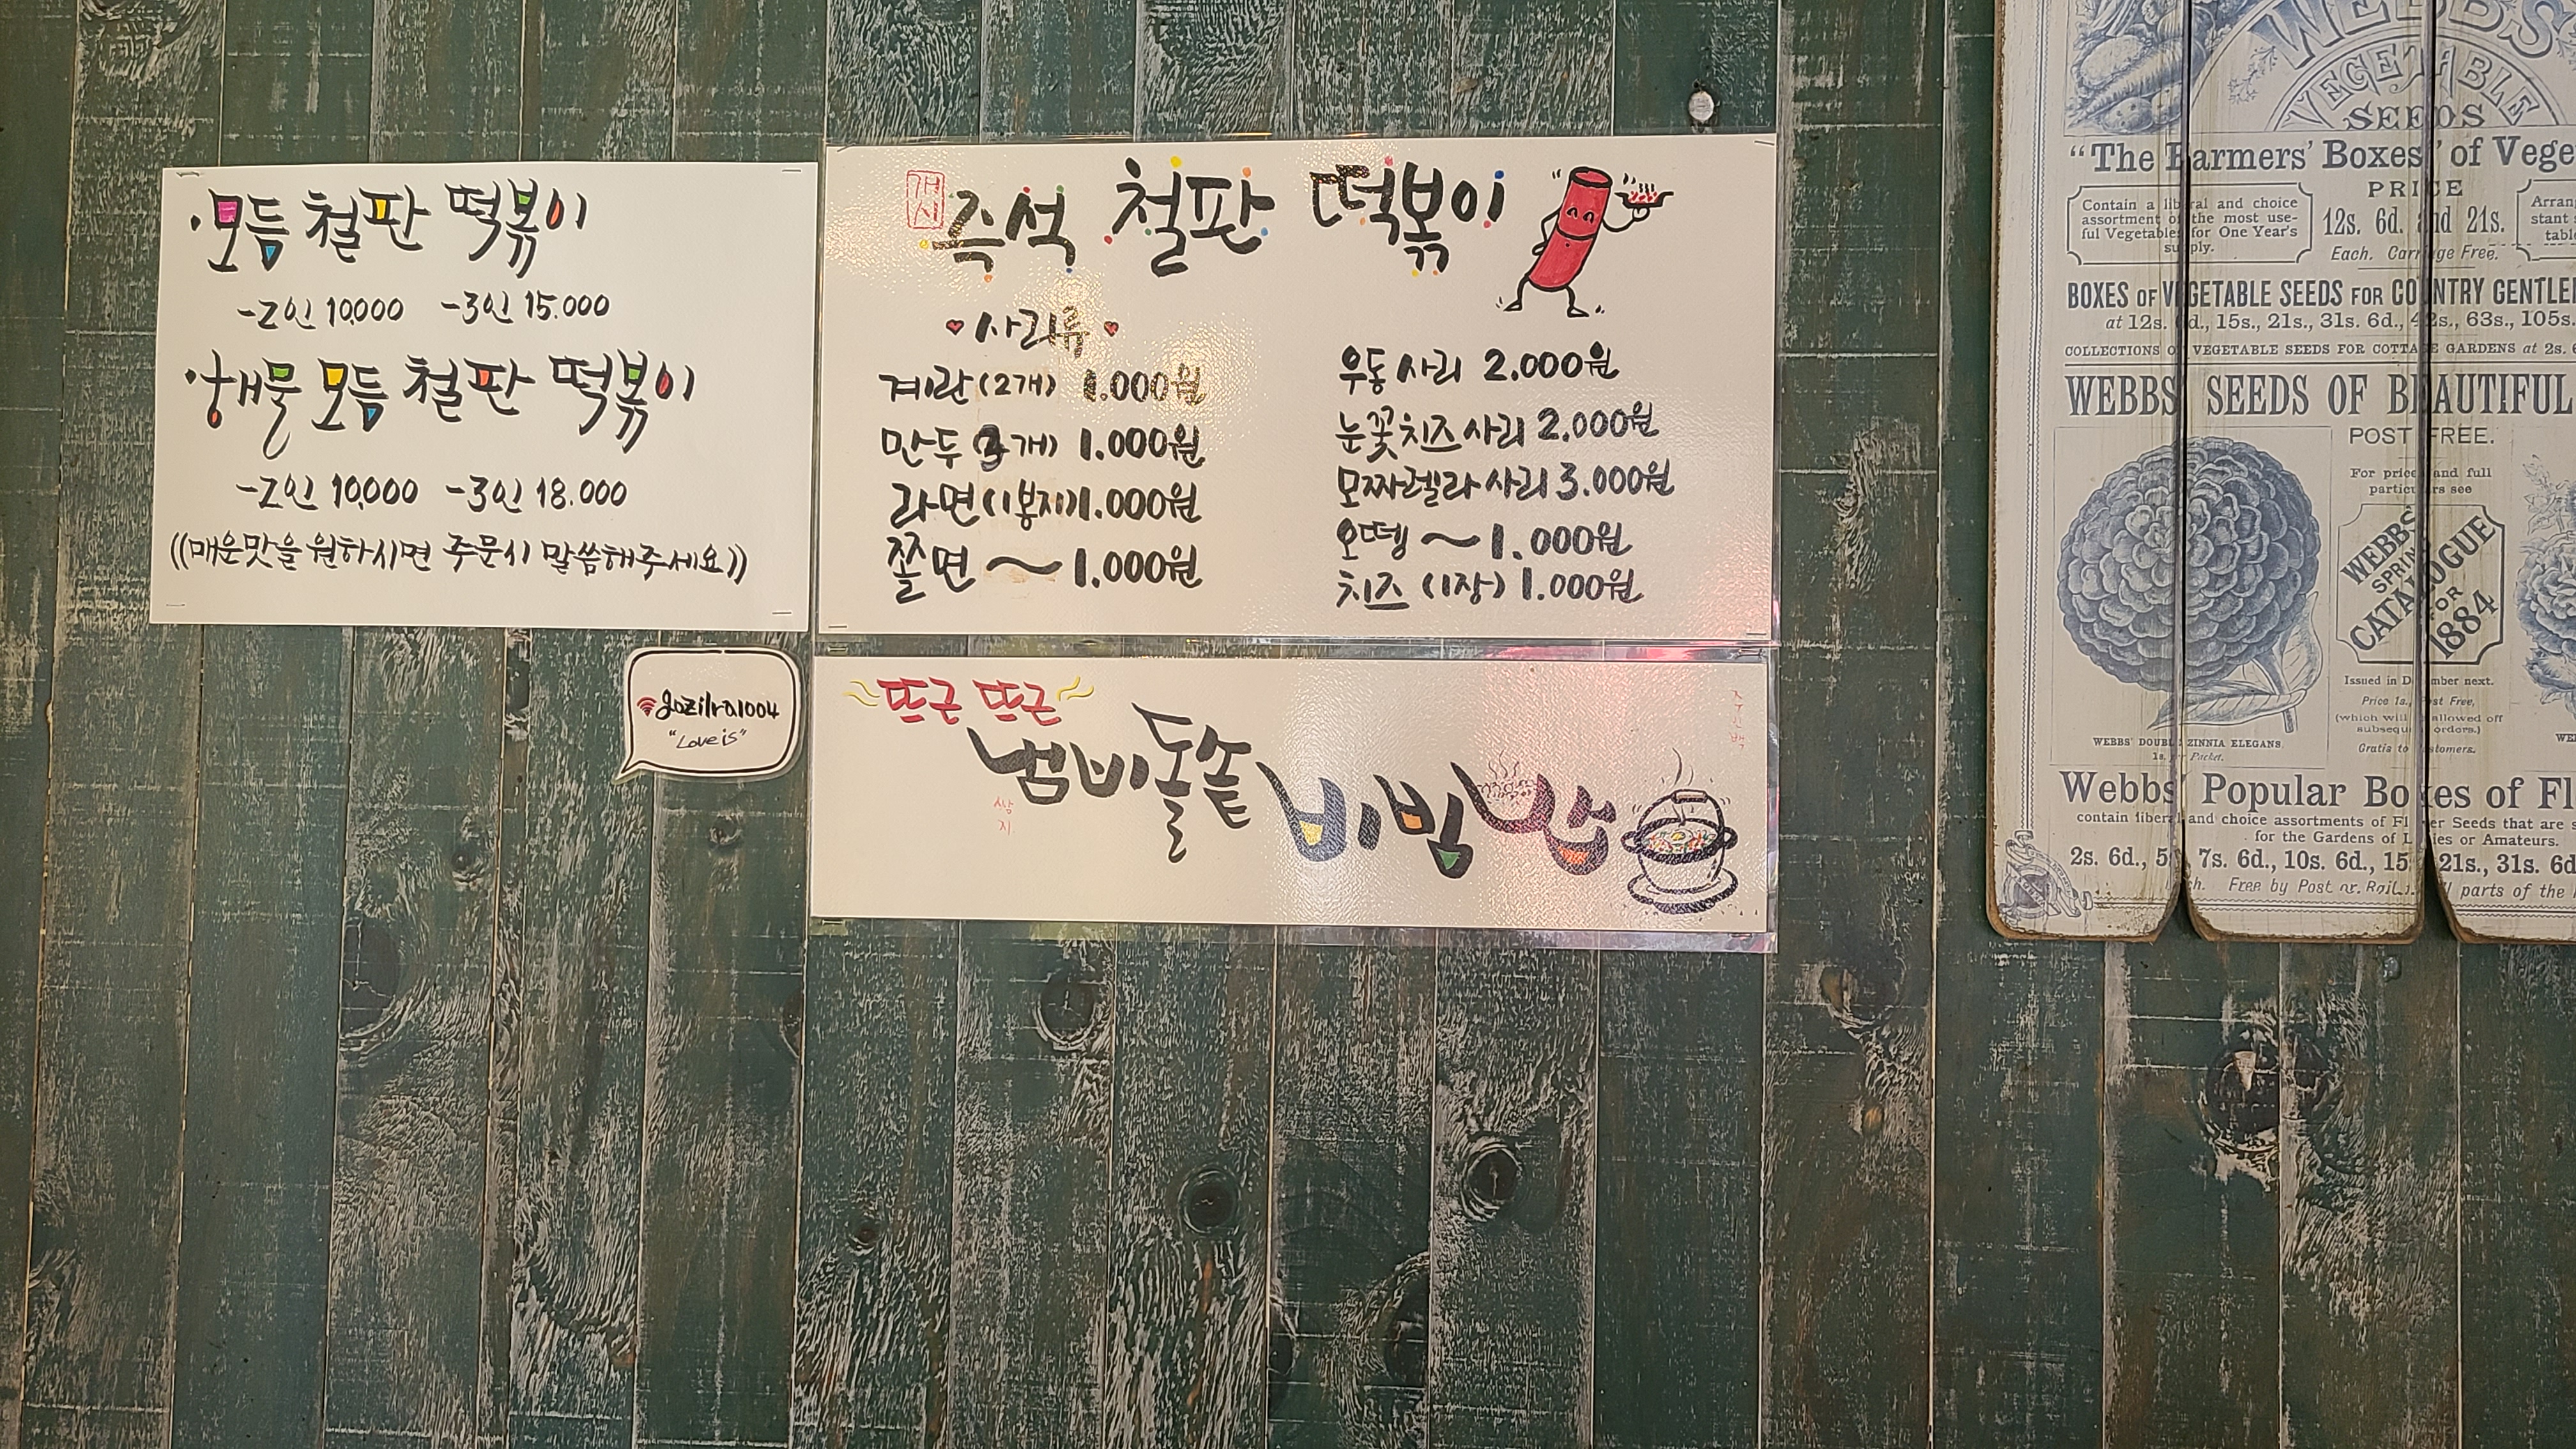 ·모듬 철판 떡볶이
-2인 10,000 -3인 15.000
·해물 모듬 철판 떡볶이
-2인 10,000 -3인 18.000
((매운맛을 원하시면 주문시 말씀해주세요))
개시
즉석 철판 떡볶이
사리류
계란(2개) 1.000원
만두 3개) 1.000원
라면(1봉지)1.000원
쫄면 ~ 1.000원
우동 사리 2.000원
눈꽃치즈 사리 2.000원
모짜렐라 사리 3.000원
오뗑 ~ 1.000원
치즈 (1장) 1.000원
"Love is"
뜨근 뜨근
냄비돌솥
비빔밥
WEBBS'
VEGETABLE
SEEDS
"The Farmers' Boxes" of Vege
PRICE
Contain a liberal and choice
assortment of the most use-
ful Vegetables for One Year's
supply.
12s. 6d. and 21s.
Each. Carriage Free.
Arran
stant
tabl
BOXES OF VEGETABLE SEEDS FOR COUNTRY GENTLE
at 12s. 6d., 15s., 21s., 31s. 6d., 42s., 63s., 105s.
COLLECTIONS OF VEGETABLE SEEDS FOR COTTAGE GARDENS at 2s. 6
WEBBS' SEEDS OF BEAUTIFUL
POST FREE.
For prices and full
particulars see
WEBBS'
SPRING
CATALOGUE
FOR
1884
Issued in December next.
Price 1s., Post Free,
(which will be allowed off
subsequent orders.)
Gratis to Customers.
WEBBS' DOUBLE ZINNIA ELEGANS.
1s. per Packet.
WE
Webbs' Popular Boxes of Fl
contain liberal and choice assortments of Flower Seeds that are s
for the Gardens of Ladies or Amateurs.
2s. 6d., 5s., 7s. 6d., 10s. 6d., 15s., 21s., 31s. 6d
Each. Free by Post or Rail to all parts of the